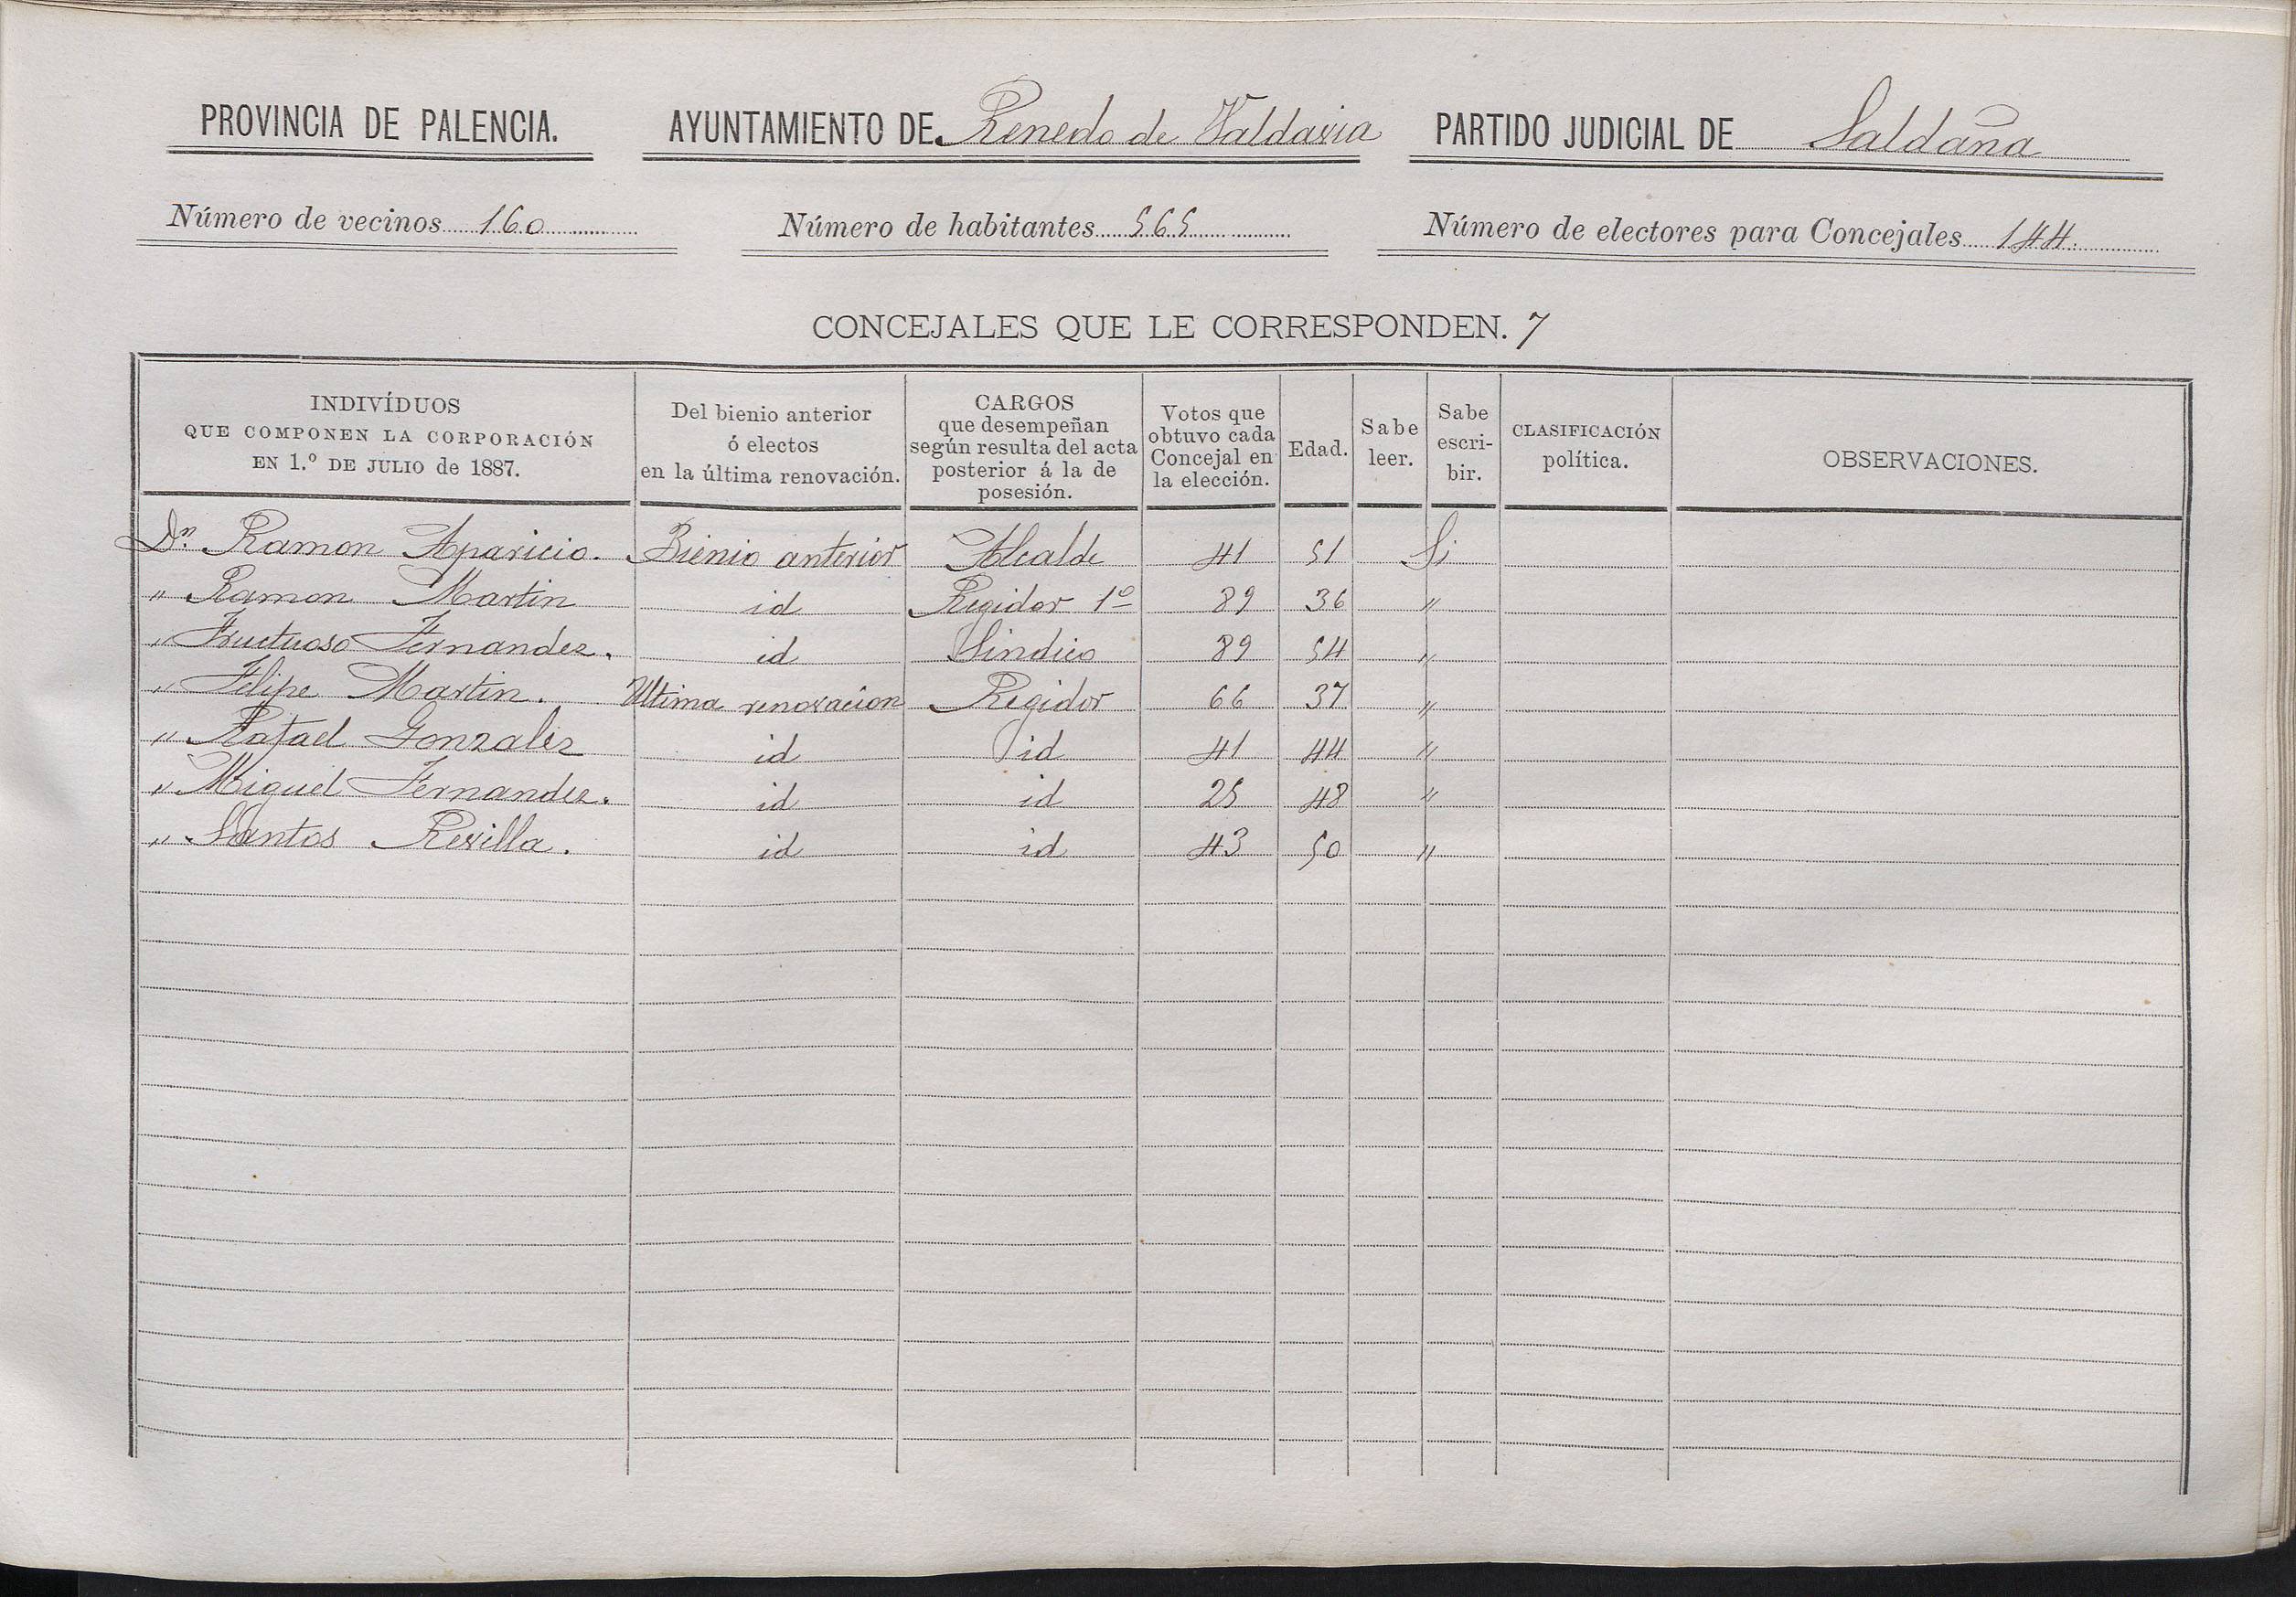 PROVINCIA DE PALENCIA. AYUNTAMIENTO DE Renedo de Valdavia PARTIDO JUDICIAL DE Saldaña
Número de vecinos 160 Número de habitantes 565 Número de electores para Concejales 144.
CONCEJALES QUE LE CORRESPONDEN. 7
INDIVÍDUOS
QUE COMPONEN LA CORPORACIÓN
EN 1.º DE JULIO de 1887.
Del bienio anterior
ó electos
en la última renovación.
CARGOS
que desempeñan
según resulta del acta
posterior á la de
posesión.
Votos que
obtuvo cada
Concejal en
la elección.
Edad.
Sabe
leer.
Sabe
escri-
bir.
CLASIFICACIÓN
política.
OBSERVACIONES.
Dn. Ramon Aparicio. Bienio anterior Alcalde 41 51 Si
" Ramon Martin id Regidor 1º 89 36 "
" Fructuoso Fernandez. id Sindico 89 54 "
" Felipe Martin. Ultima renovacion Regidor 66 37 "
" Rafael Gonzalez id id 41 44 "
" Miguel Fernandez. id id 25 48 "
" Santos Revilla. id id 43 50 "